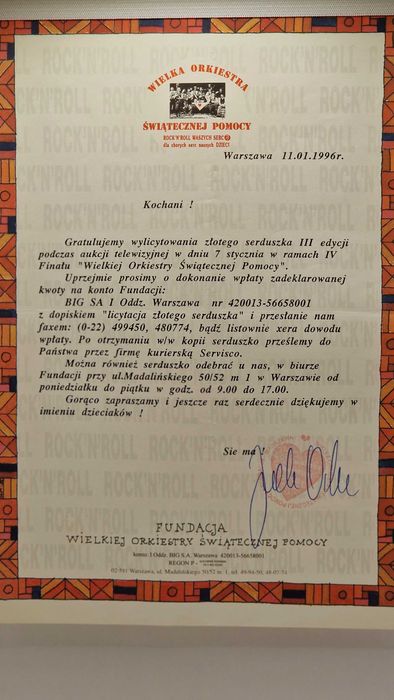 WIELKA ORKIESTRA
ŚWIĄTECZNEJ POMOCY
ROCK'N'ROLL WASZYCH SERC
dla chorych serc naszych DZIECI
Warszawa 11.01.1996r.
Kochani !
Gratulujemy wylicytowania złotego serduszka III edycji
podczas aukcji telewizyjnej w dniu 7 stycznia w ramach IV
Finału "Wielkiej Orkiestry Świątecznej Pomocy".
Uprzejmie prosimy o dokonanie wpłaty zadeklarowanej
kwoty na konto Fundacji:
BIG SA I Oddz. Warszawa nr 420013-56658001
z dopiskiem "licytacja złotego serduszka" i przesłanie nam
faxem: (0-22) 499450, 480774, bądź listownie xera dowodu
wpłaty. Po otrzymaniu w/w kopii serduszko prześlemy do
Państwa przez firmę kurierską Servisco.
Można również serduszko odebrać u nas, w biurze
Fundacji przy ul.Madalińskiego 50/52 m 1 w Warszawie od
poniedziałku do piątku w godz. od 9.00 do 17.00.
Gorąco zapraszamy i jeszcze raz serdecznie dziękujemy w
imieniu dzieciaków !
Sie ma !
FUNDACJA
WIELKIEJ ORKIESTRY ŚWIĄTECZNEJ POMOCY
konto: I Oddz. BIG S.A. Warszawa 420013-56658001
REGON P -
02-591 Warszawa, ul. Madalińskiego 50/52 m. 1, tel. 49-94-50, 48-07-74